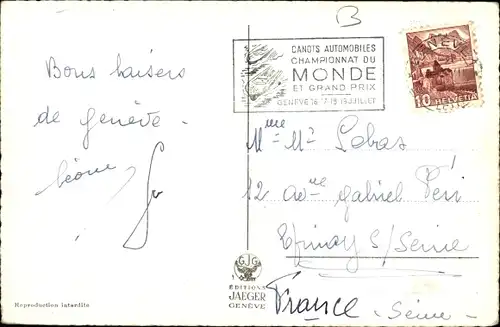 B
CANOTS AUTOMOBILES
CHAMPIONNAT DU
MONDE
ET GRAND PRIX
GENÈVE 16 17 18 19 JUILLET
GENÈVE
10 HELVETIA
Bons baisers
de Genève -
Mme Mr Lebas
12 Avnue Gabriel Péri
Epinay S/Seine
France - Seine -
GJG
ÉDITIONS
JAEGER
GENÈVE
Reproduction interdite